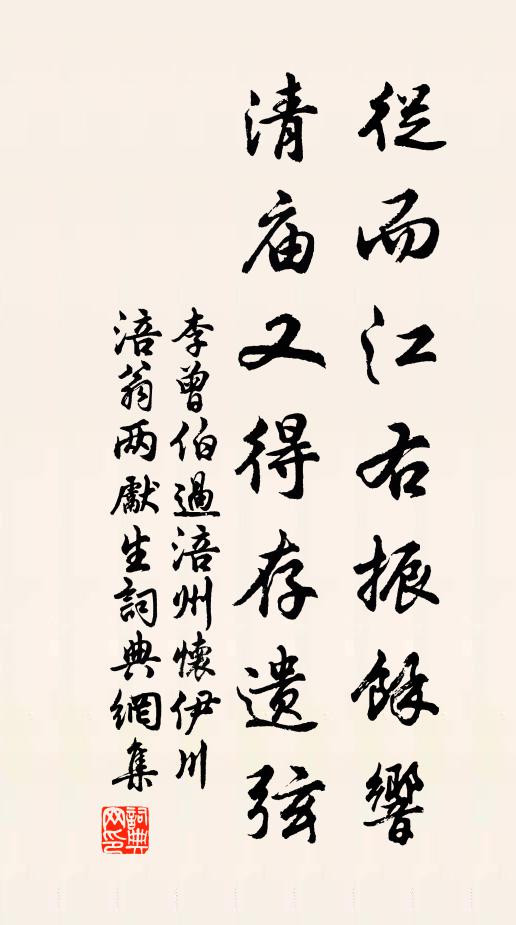 從而江右振餘響
清庙又得存遗弦
李曾伯過涪州懷伊川
涪翁两獻生詞典網集
詞典网印